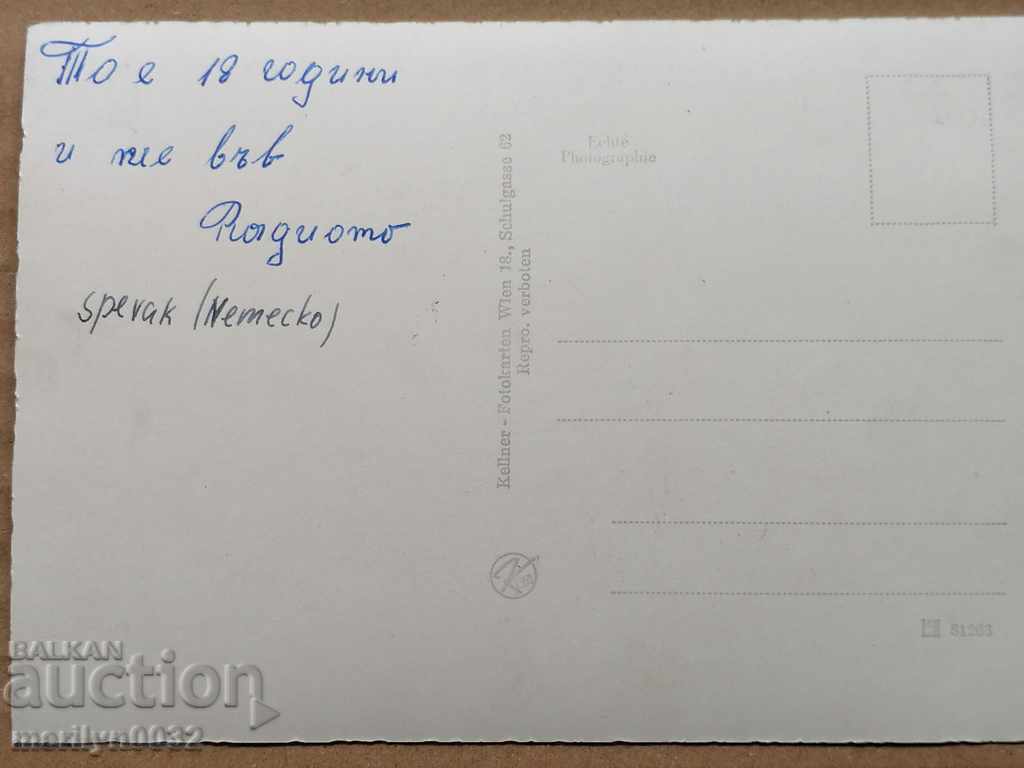 То е 18 години
и же във
Радиото
spevak (Nemecko)
Kellner - Fotokarten Wien 18., Schulgasse 62
Repro. verboten
Echte
Photographie
81263
BALKAN
auction
marilyn0032